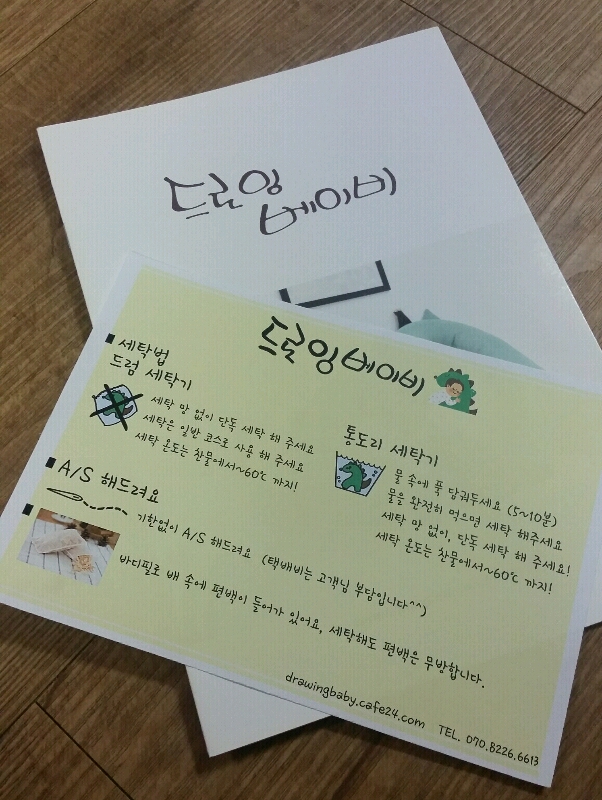 드로잉
베이비
드로잉베이비
■ 세탁법
드럼 세탁기
세탁 망 없이 단독 세탁 해 주세요
세탁은 일반 코스로 사용 해 주세요
세탁 온도는 찬물에서~60℃ 까지!
통도리 세탁기
물 속에 푹 담궈두세요 (5~10분)
물을 완전히 먹으면 세탁 해주세요
세탁 망 없이, 단독 세탁 해 주세요!
세탁 온도는 찬물에서~60℃ 까지!
■ A/S 해드려요
기한없이 A/S 해드려요 (택배비는 고객님 부담입니다^^)
바디필로 배 속에 편백이 들어가 있어요, 세탁해도 편백은 무방합니다.
drawingbaby.cafe24.com TEL. 070.8226.6613